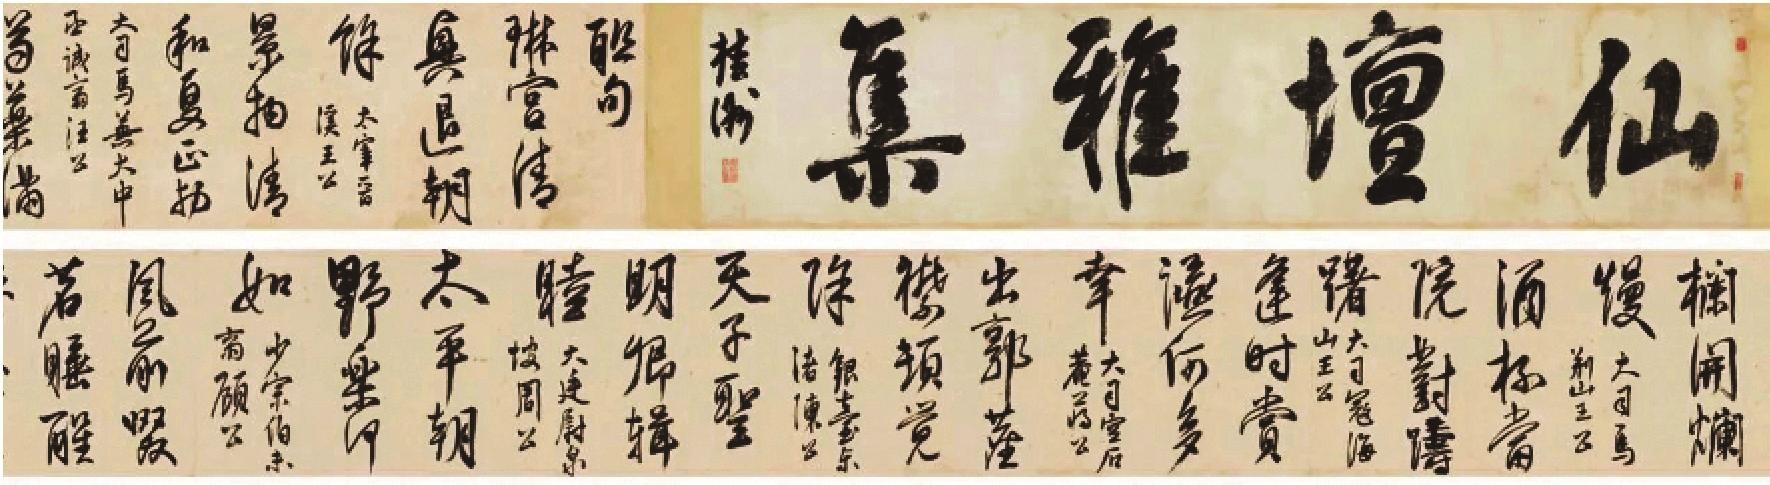 仙壇雅集
桂洲
聯句
琳宮清
興退朝
餘
太宰
溪王公
景物清
和夏正初
大司馬兼大中
丞誠齋汪公
芍藥滿
欄開爛
熳
大司馬
荊山王公
酒杯當
院對躊
躇
大司寇海
山王公
逢時賞
讌何多
幸
大司空石
菴蔣公
出郭塵
襟頓覺
除
銀臺東
渚陳公
天子聖
明卿輯
睦
大廷尉泉
坡周公
太平朝
野樂何
如
少宗伯未
齋顧公
風前啜
茗睡醒